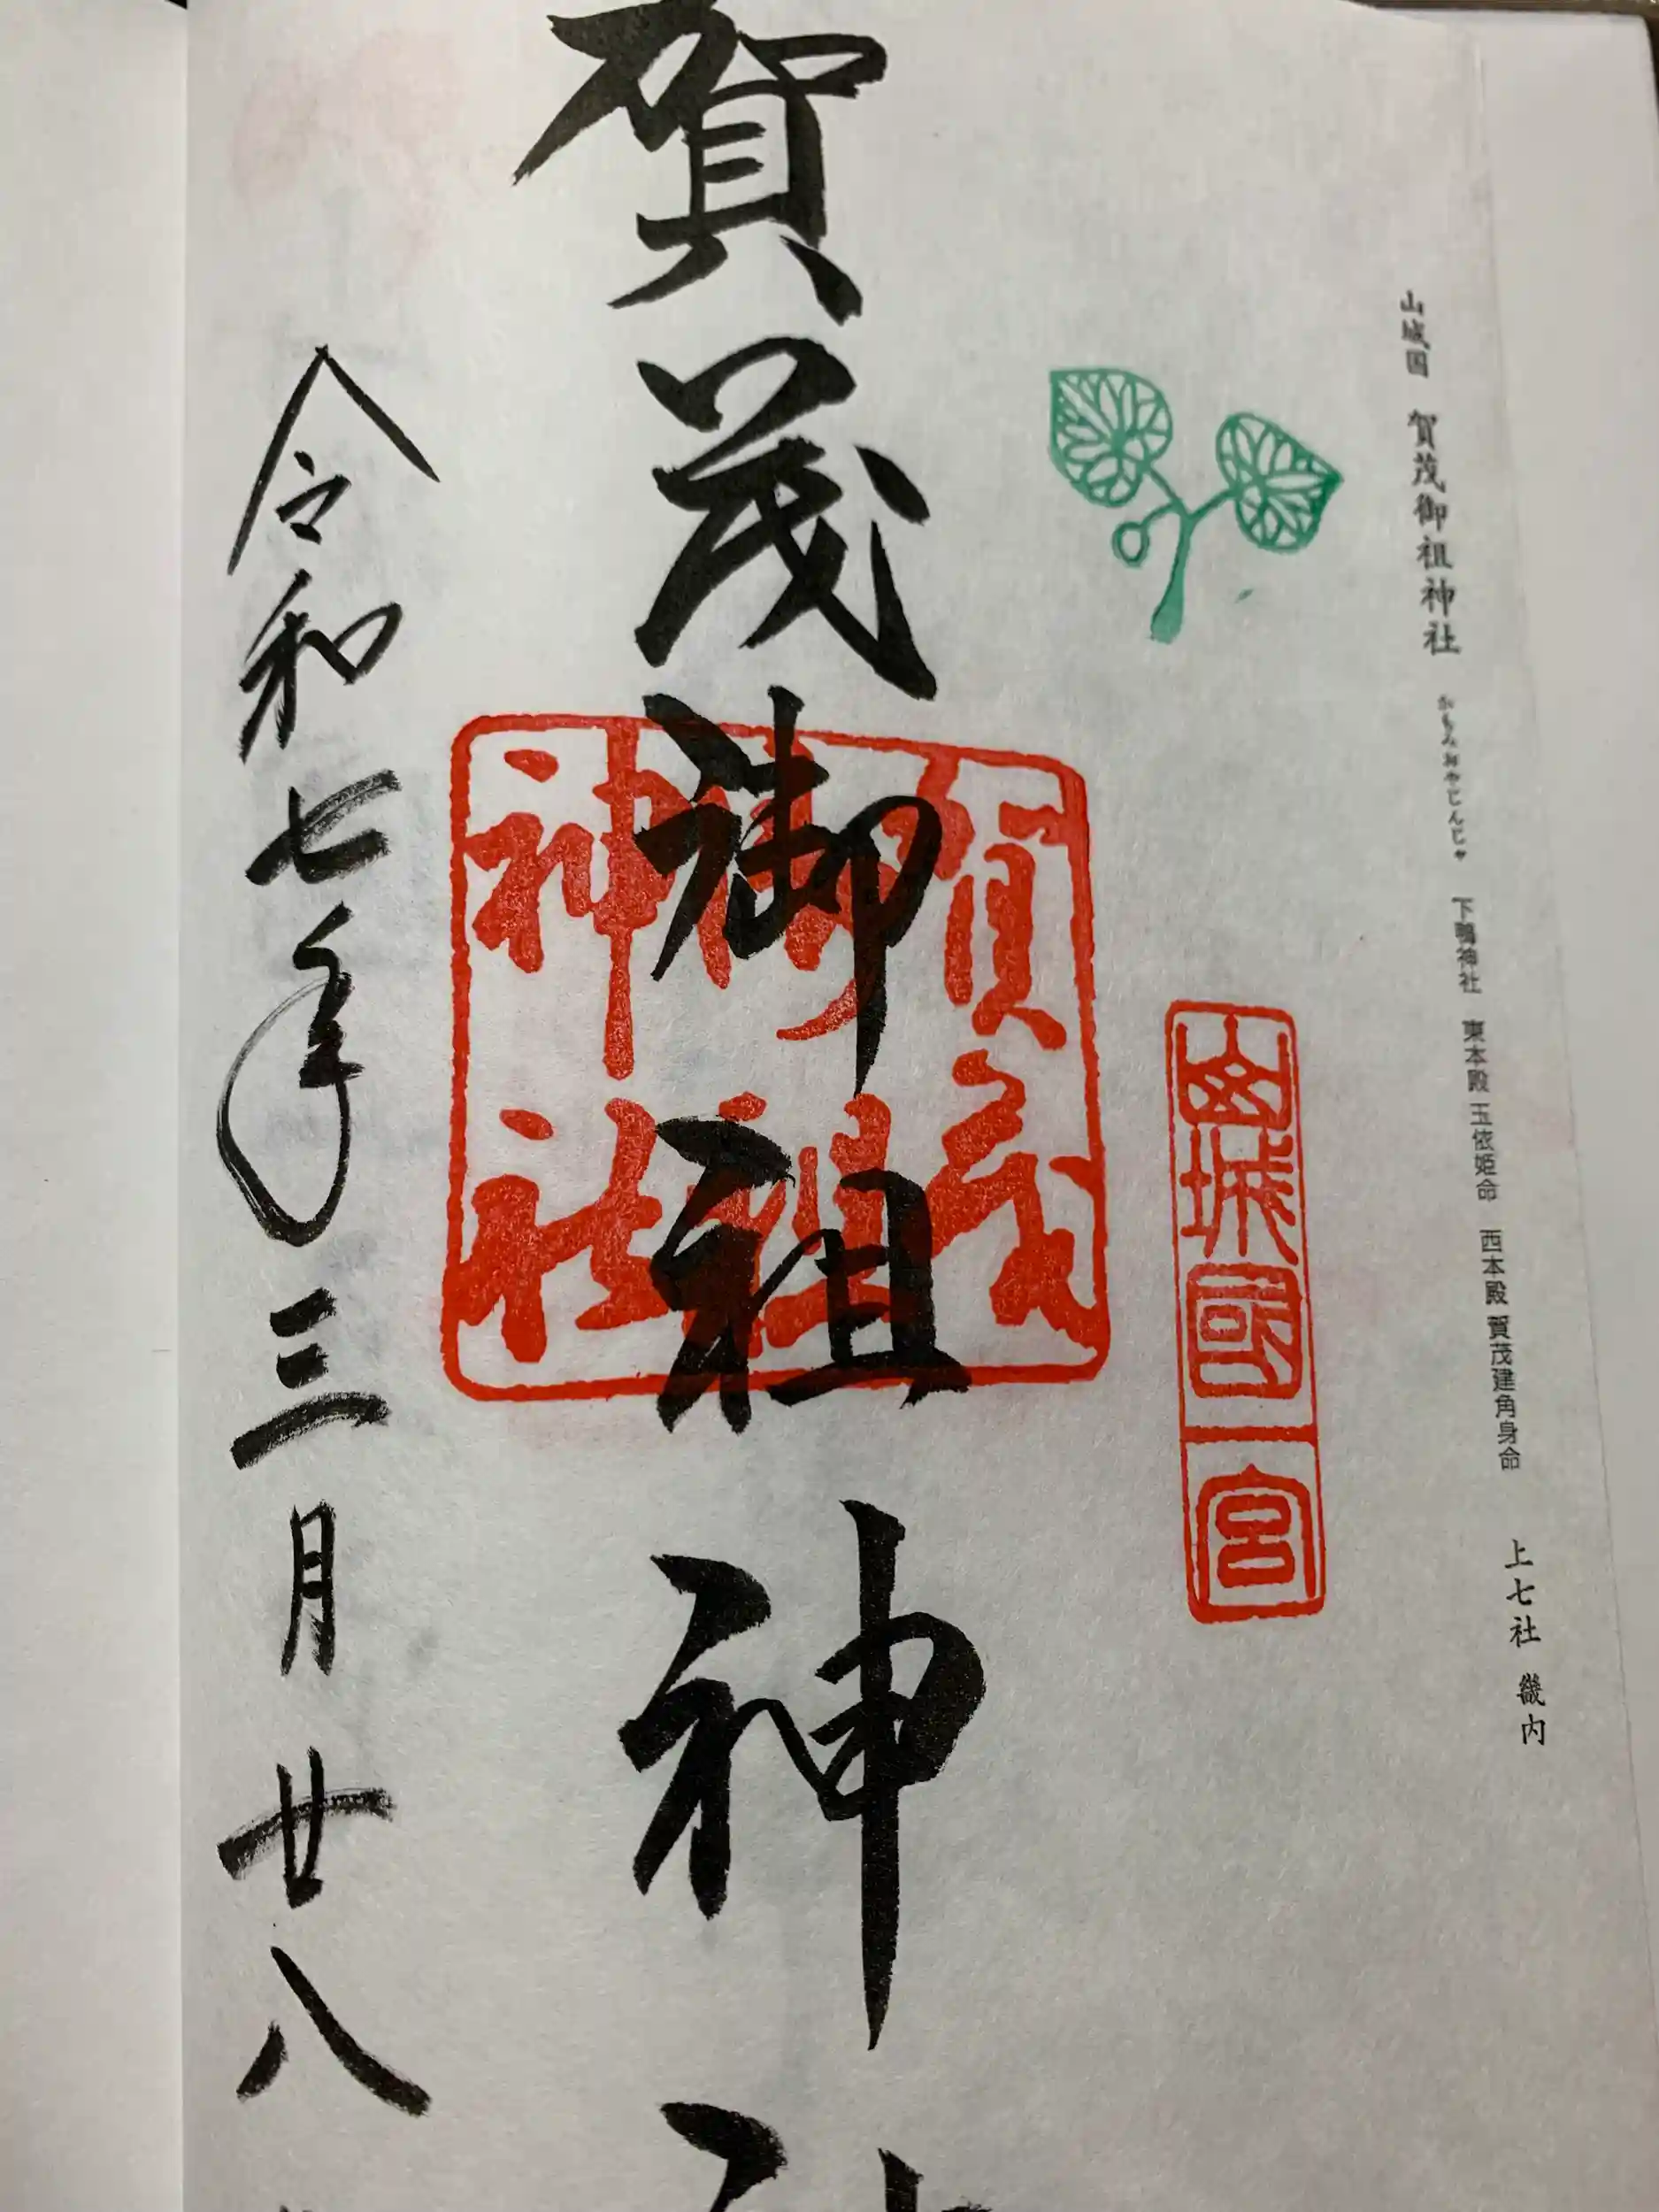 山城国 賀茂御祖神社 かもみおやじんじゃ 下鴨神社 東本殿 玉依姫命 西本殿 賀茂建角身命 上七社 畿内
山城國一宮
賀茂御祖神社
賀茂
御祖
神社
令和七年三月廿八